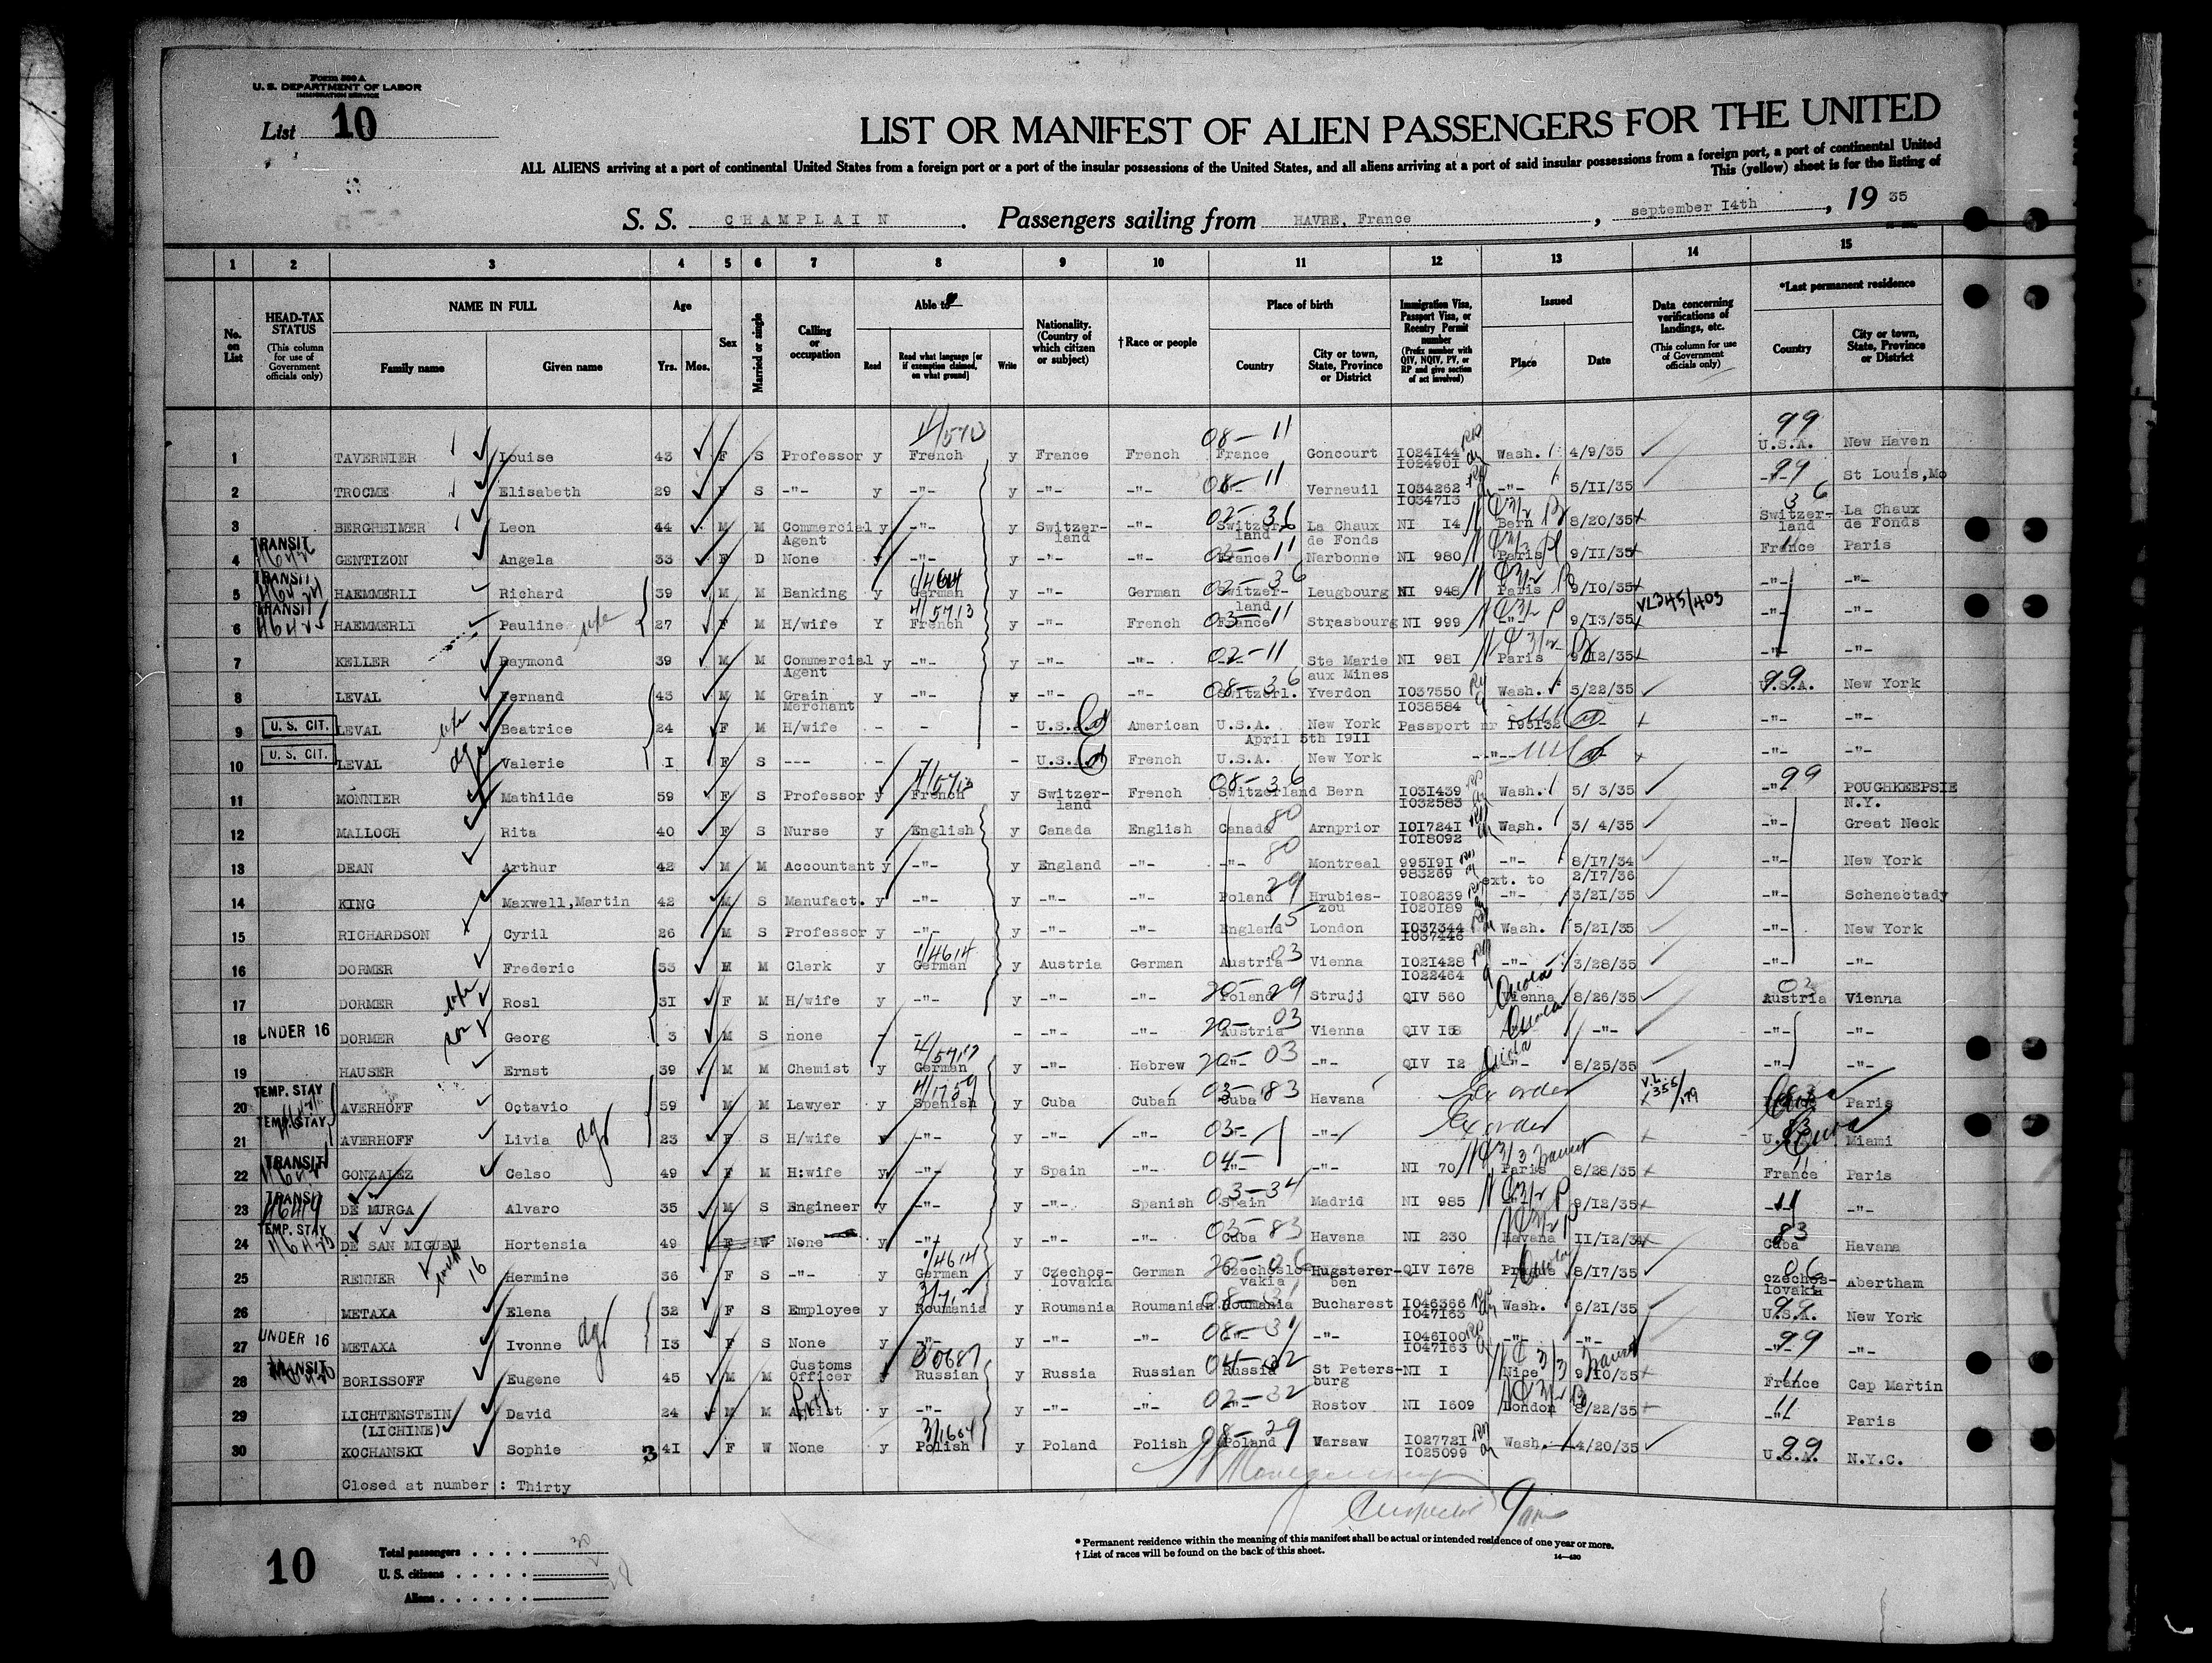 Form 500 A
U. S. DEPARTMENT OF LABOR
IMMIGRATION SERVICE
List 10
LIST OR MANIFEST OF ALIEN PASSENGERS FOR THE UNITED
ALL ALIENS arriving at a port of continental United States from a foreign port or a port of the insular possessions of the United States, and all aliens arriving at a port of said insular possessions from a foreign port, a port of continental United
This (yellow) sheet is for the listing of
S. S. CHAMPLAIN . Passengers sailing from HAVRE, France , september 14th , 19 35
1 2 3 4 5 6 7 8 9 10 11 12 13 14 15
No. on List
HEAD-TAX STATUS (This column for use of Government officials only)
NAME IN FULL Family name Given name
Age Yrs. Mos.
Sex
Married or single
Calling or occupation
Able to Read Read what language [or if exemption claimed, on what ground] Write
Nationality. (Country of which citizen or subject)
†Race or people
Place of birth Country City or town, State, Province or District
Immigration Visa, Passport Visa, or Reentry Permit number (Prefix number with QIV, NQIV, PV, or RP and give section of act involved)
Issued Place Date
Data concerning verifications of landings, etc. (This column for use of Government officials only)
*Last permanent residence Country City or town, State, Province or District
1 TAVERNIER Louise 43 F S Professor y French y France French France Goncourt I024144 I024901 Wash. 4/9/35 U.S.A. New Haven
2 TROCME Elisabeth 29 F S -"- y -"- y -"- -"- Verneuil I034262 I034713 -"- 5/11/35 -"- St Louis,Mo
3 BERGHEIMER Leon 44 M M Commercial Agent y -"- y Switzer-land -"- Switzer-land La Chaux de Fonds NI 14 Bern 8/20/35 Switzer-land La Chaux de Fonds
4 TRANSIT GENTIZON Angela 33 F D None y -"- y -"- -"- France Narbonne NI 980 Paris 9/11/35 France Paris
5 TRANSIT HAEMMERLI Richard 39 M M Banking y German y -"- German Switzer-land Leugbourg NI 948 Paris 9/10/35 -"- -"-
6 TRANSIT HAEMMERLI Pauline wife 27 F M H/wife Y French y -"- French France Strasbourg NI 999 -"- 9/13/35 VL345/403 -"- -"-
7 KELLER Raymond 39 M M Commercial Agent y -"- y -"- -"- -"- Ste Marie aux Mines NI 981 Paris 9/12/35 -"- -"-
8 LEVAL Fernand 43 M M Grain Merchant y -"- y -"- -"- Switzerl. Yverdon I037550 I038584 Wash. 5/22/35 U.S.A. New York
9 U. S. CIT. LEVAL wife Beatrice 24 F M H/wife - - - U.S.A. American U.S.A. New York April 5th 1911 Passport nr 195132 -"- -"-
10 U. S. CIT. LEVAL Valerie 1 F S --- - - - U.S.A. French U.S.A. New York --"-- -"- -"-
11 MONNIER Mathilde 59 F S Professor y French y Switzer-land French Switzerland Bern I031439 I032583 Wash. 5/ 3/35 -"- POUGHKEEPSIE N.Y.
12 MALLOCH Rita 40 F S Nurse y English y Canada English Canada Arnprior I017241 I018092 Wash. 3/ 4/35 -"- Great Neck
13 DEAN Arthur 42 M M Accountant y -"- y England -"- -"- Montreal 995191 983269 -"- ext. to 8/17/34 2/17/36 -"- New York
14 KING Maxwell,Martin 42 M S Manufact. y -"- y -"- -"- Poland Hrubies-zou I020239 I020189 -"- 3/21/35 -"- Schenectady
15 RICHARDSON Cyril 26 M S Professor y -"- y -"- -"- England London I037344 I037446 Wash. 5/21/35 -"- New York
16 DORMER Frederic 33 M M Clerk y German y Austria German Austria Vienna I021428 I022464 -"- 3/28/35 -"- -"-
17 DORMER wife Rosl 31 F M H/wife y -"- y -"- -"- Poland Strujj QIV 560 Vienna 8/26/35 Austria Vienna
18 UNDER 16 DORMER son Georg 3 M S none - - - -"- -"- Austria Vienna QIV 158 -"- -"- -"-
19 HAUSER Ernst 39 M M Chemist y German y -"- Hebrew -"- -"- QIV 12 -"- 8/25/35 -"- -"-
20 TEMP. STAY AVERHOFF Octavio 59 M M Lawyer y Spanish y Cuba Cuban Cuba Havana Ex order V.L. 355/179 Paris
21 TEMP. STAY AVERHOFF Livia 23 F S H/wife y -"- y -"- -"- -"- Ex order Miami
22 TRANSIT GONZALEZ Celso 49 F M H:wife y -"- y Spain -"- -"- -"- NI 70 Paris 8/28/35 France Paris
23 TRANSIT DE MURGA Alvaro 35 M S Engineer y -"- y -"- Spanish Spain Madrid NI 985 9/12/35 -"- -"-
24 TEMP. STAY DE SAN MIGUEL Hortensia 49 F W None y -"- y -"- -"- Cuba Havana NI 230 Havana 11/12/34 Cuba Havana
25 RENNER Hermine 36 F S -"- y German y Czechos-lovakia German Czechoslo-vakia Hugsterer-ben QIV 1678 Prague 8/17/35 czechos-lovakia Abertham
26 METAXA Elena 32 F S Employee y Roumania y Roumania Roumanian Roumania Bucharest I046366 I047163 Wash. 6/21/35 U.S.A. New York
27 UNDER 16 METAXA Ivonne 13 F S None y -"- y -"- -"- -"- I046100 I047163 -"- -"- -"- -"-
28 TRANSIT BORISSOFF Eugene 45 M M Customs Officer y Russian y Russia Russian Russia St Peters-burg NI 1 Nice 9/10/35 France Cap Martin
29 LICHTENSTEIN (LICHINE) David 24 M M Artist y -"- y -"- -"- Rostov NI 1609 London 8/22/35 -"- Paris
30 KOCHANSKI Sophie 41 F W None y Polish y Poland Polish Poland Warsaw I027721 I025099 Wash. 4/20/35 U.S.A. N.Y.C.
Closed at number : Thirty
10
Total passengers
U. S. citizens
Aliens
* Permanent residence within the meaning of this manifest shall be actual or intended residence of one year or more.
† List of races will be found on the back of this sheet.
14—430